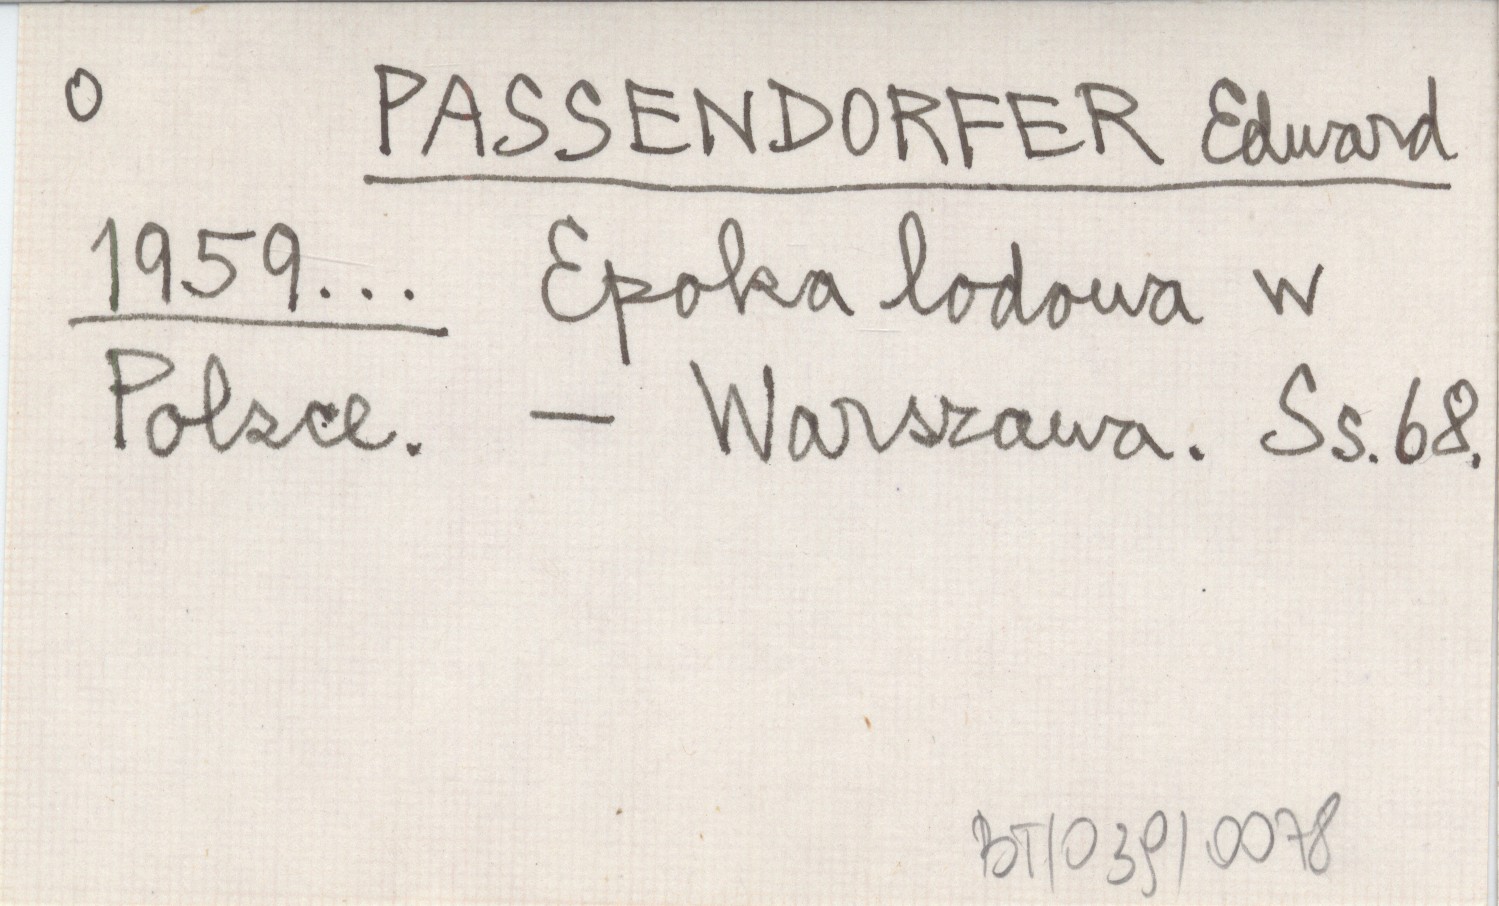 o PASSENDORFER Edward
1959... Epoka lodowa w
Polsce. — Warszawa. Ss. 68.
BT/039/0078